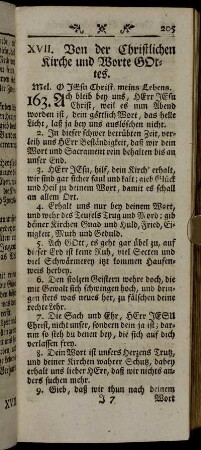 205
XVII. Von der Christlichen
Kirche und Worte GOt-
tes.
Mel. O JEsu Christ, meins Lebens.
163. Ach bleib bey uns, HErr JEsu
Christ, weil es nun Abend
worden ist, dein göttlich Wort, das helle
Licht, laß ja bey uns auslöschen nicht.
2. In dieser schwer betrübten Zeit, ver-
leih uns HErr Beständigkeit, daß wir dein
Wort und Sacrament rein behalten bis an
unser End.
3. HErr JEsu, hilf, dein Kirch' erhalt,
wir sind gar sicher faul und kalt; gieb Glück
und Heil zu deinem Wort, damit es schall
an allem Ort.
4. Erhalt uns nur bey deinem Wort,
und wehr des Teufels Trug und Mord: gib
deiner Kirchen Gnad und Huld, Fried, Ei-
nigkeit, Muth und Geduld.
5. Ach GOtt, es geht gar übel zu, auf
dieser Erd ist keine Ruh, viel Secten und
viel Schwärmerey itzt kommen Haufen-
weis herbey.
6. Den stolzen Geistern wehre doch, die
mit Gewalt sich schwingen hoch, und brin-
gen stets was neues her, zu fälschen deine
rechte Lehr.
7. Die Sach und Ehr, HErr JESU
Christ, nicht unser, sondern dein ja ist; dar-
um so steh du denen bey, die sich auf dich
verlassen frey.
8. Dein Wort ist unsers Herzens Trutz,
und deiner Kirchen wahrer Schutz, dabey
erhalt uns lieber HErr, daß wir nichts an-
ders suchen mehr.
9. Gieb, daß wir thun nach deinem
J 7 Wort
XVI